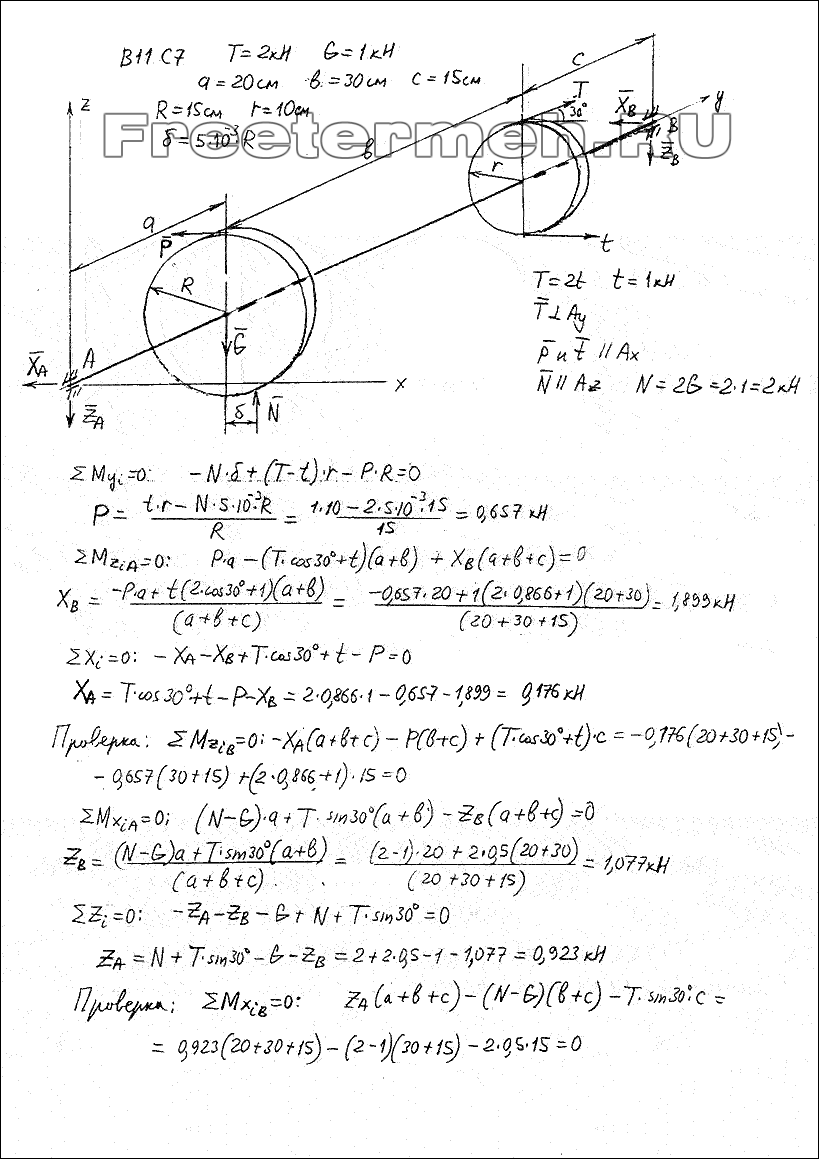 В11 С7 T=2кН G=1кН
a=20см в=30см c=15см
R=15см r=10см
δ=5·10⁻³R
Freetermeh.RU
z
c
T
30°
X̄_B
y
B
Z̄_B
в
r
a
P̄
t
R
T=2t t=1кН
T̄⊥Ay
P̄ и t̄ // Ax
N̄ // Az N=2G=2·1=2кН
Ḡ
X̄_A
A
x
Z̄_A
δ
N̄
ΣMyi=0: -N·δ+(T-t)·r-P·R=0
P = (t·r-N·5·10⁻³·R)/R = (1·10-2·5·10⁻³·15)/15 = 0,657 кН
ΣMziA=0: P·a-(T·cos30°+t)(a+в)+X_B(a+в+c)=0
X_B = (-P·a+t(2·cos30°+1)(a+в))/(a+в+c) = (-0,657·20+1(2·0,866+1)(20+30))/(20+30+15) = 1,899кН
ΣXi=0: -X_A-X_B+T·cos30°+t-P=0
X_A=T·cos30°+t-P-X_B=2·0,866·1-0,657-1,899= 0,176кН
Проверка: ΣMziB=0: -X_A(a+в+c)-P(в+c)+(T·cos30°+t)·c=-0,176(20+30+15)-
-0,657(30+15)+(2·0,866+1)·15=0
ΣMxiA=0; (N-G)·a+T·sin30°(a+в)-Z_B(a+в+c)=0
Z_B = ((N-G)a+T·sin30°(a+в))/(a+в+c) = ((2-1)·20+2·0,5(20+30))/(20+30+15) = 1,077кН
ΣZi=0: -Z_A-Z_B-G+N+T·sin30°=0
Z_A=N+T·sin30°-G-Z_B=2+2·0,5-1-1,077=0,923кН
Проверка; ΣMxiB=0: Z_A(a+в+c)-(N-G)(в+c)-T·sin30°·c=
=0,923(20+30+15)-(2-1)(30+15)-2·0,5·15=0